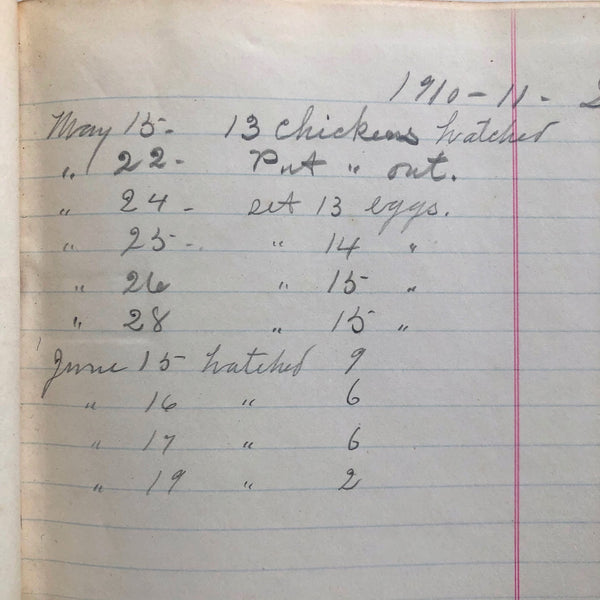 1910-11-
May 15- 13 chickens hatched
" 22- Put " out.
" 24- set 13 eggs.
" 25- " 14 "
" 26 " 15 "
" 28 " 15 "
June 15 hatched 9
" 16 " 6
" 17 " 6
" 19 " 2